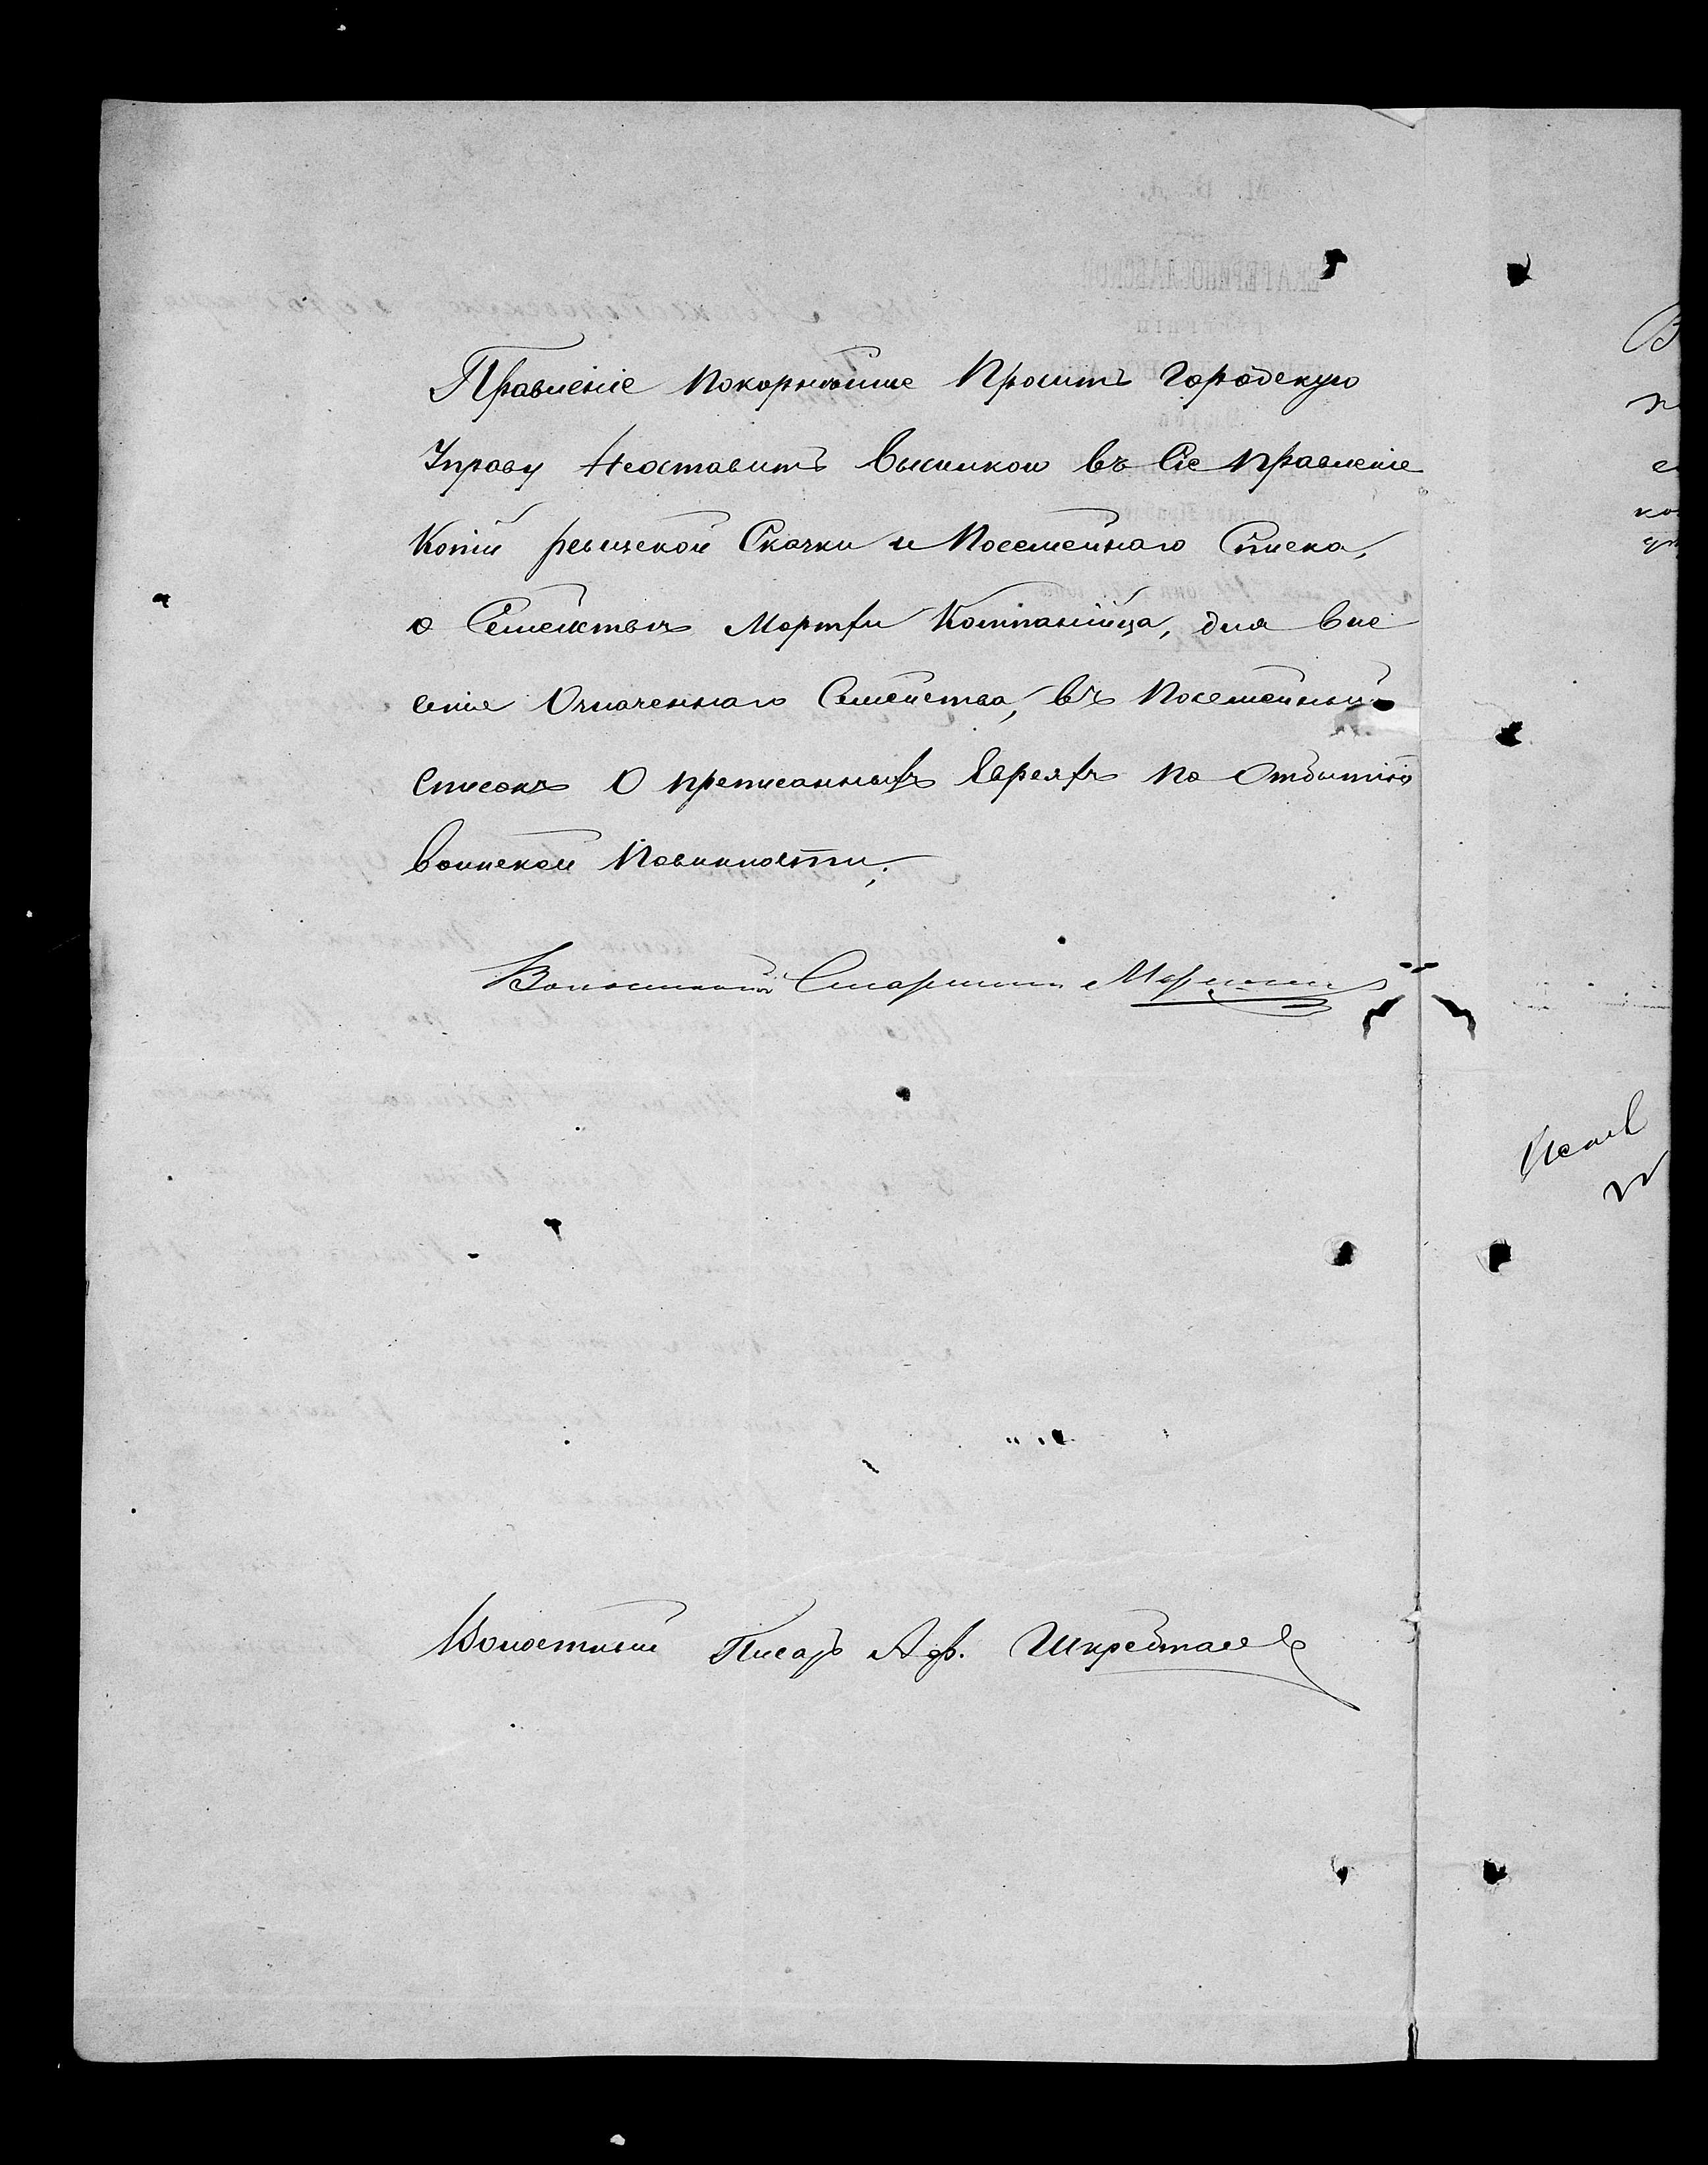 Правленіе Покорнѣйше Проситъ Городскую
Управу Неоставить высилкою въ Сіе Правленіе
Копій ревизской Скаски и Посемейнаго Списка,
о Семействѣ Мортхи Компанійца, для вне
сенія Означеннаго Семейства, въ Посемейный
списокъ О преписанныхъ Евреяхъ По Отбытію
воинской Повинности;
Волостной Старшина
Волостный Писарь Аф.